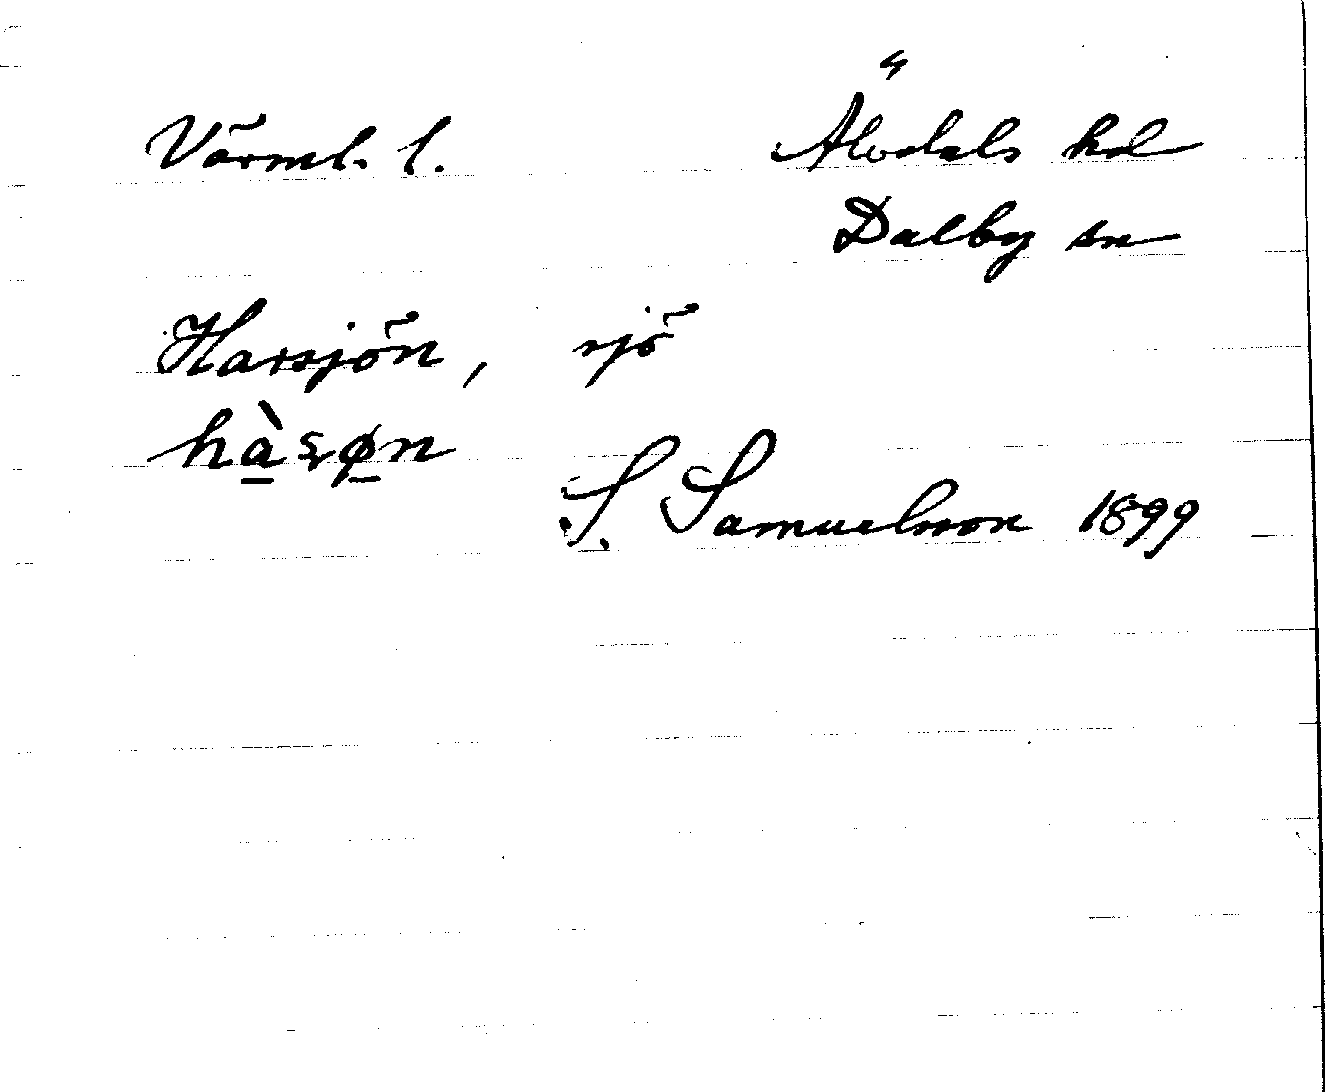 Värml. l. Älvdals hd
Dalby sn
Harsjön, sjö
hàsøn
S. Samuelsson 1899